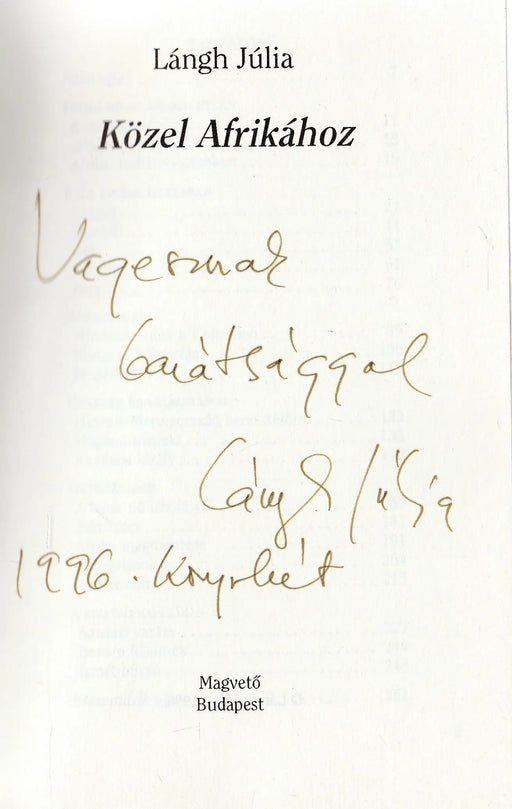 Lángh Júlia
Közel Afrikához
barátsággal
Lángh Júlia
1996. Könyvhét
Magvető
Budapest